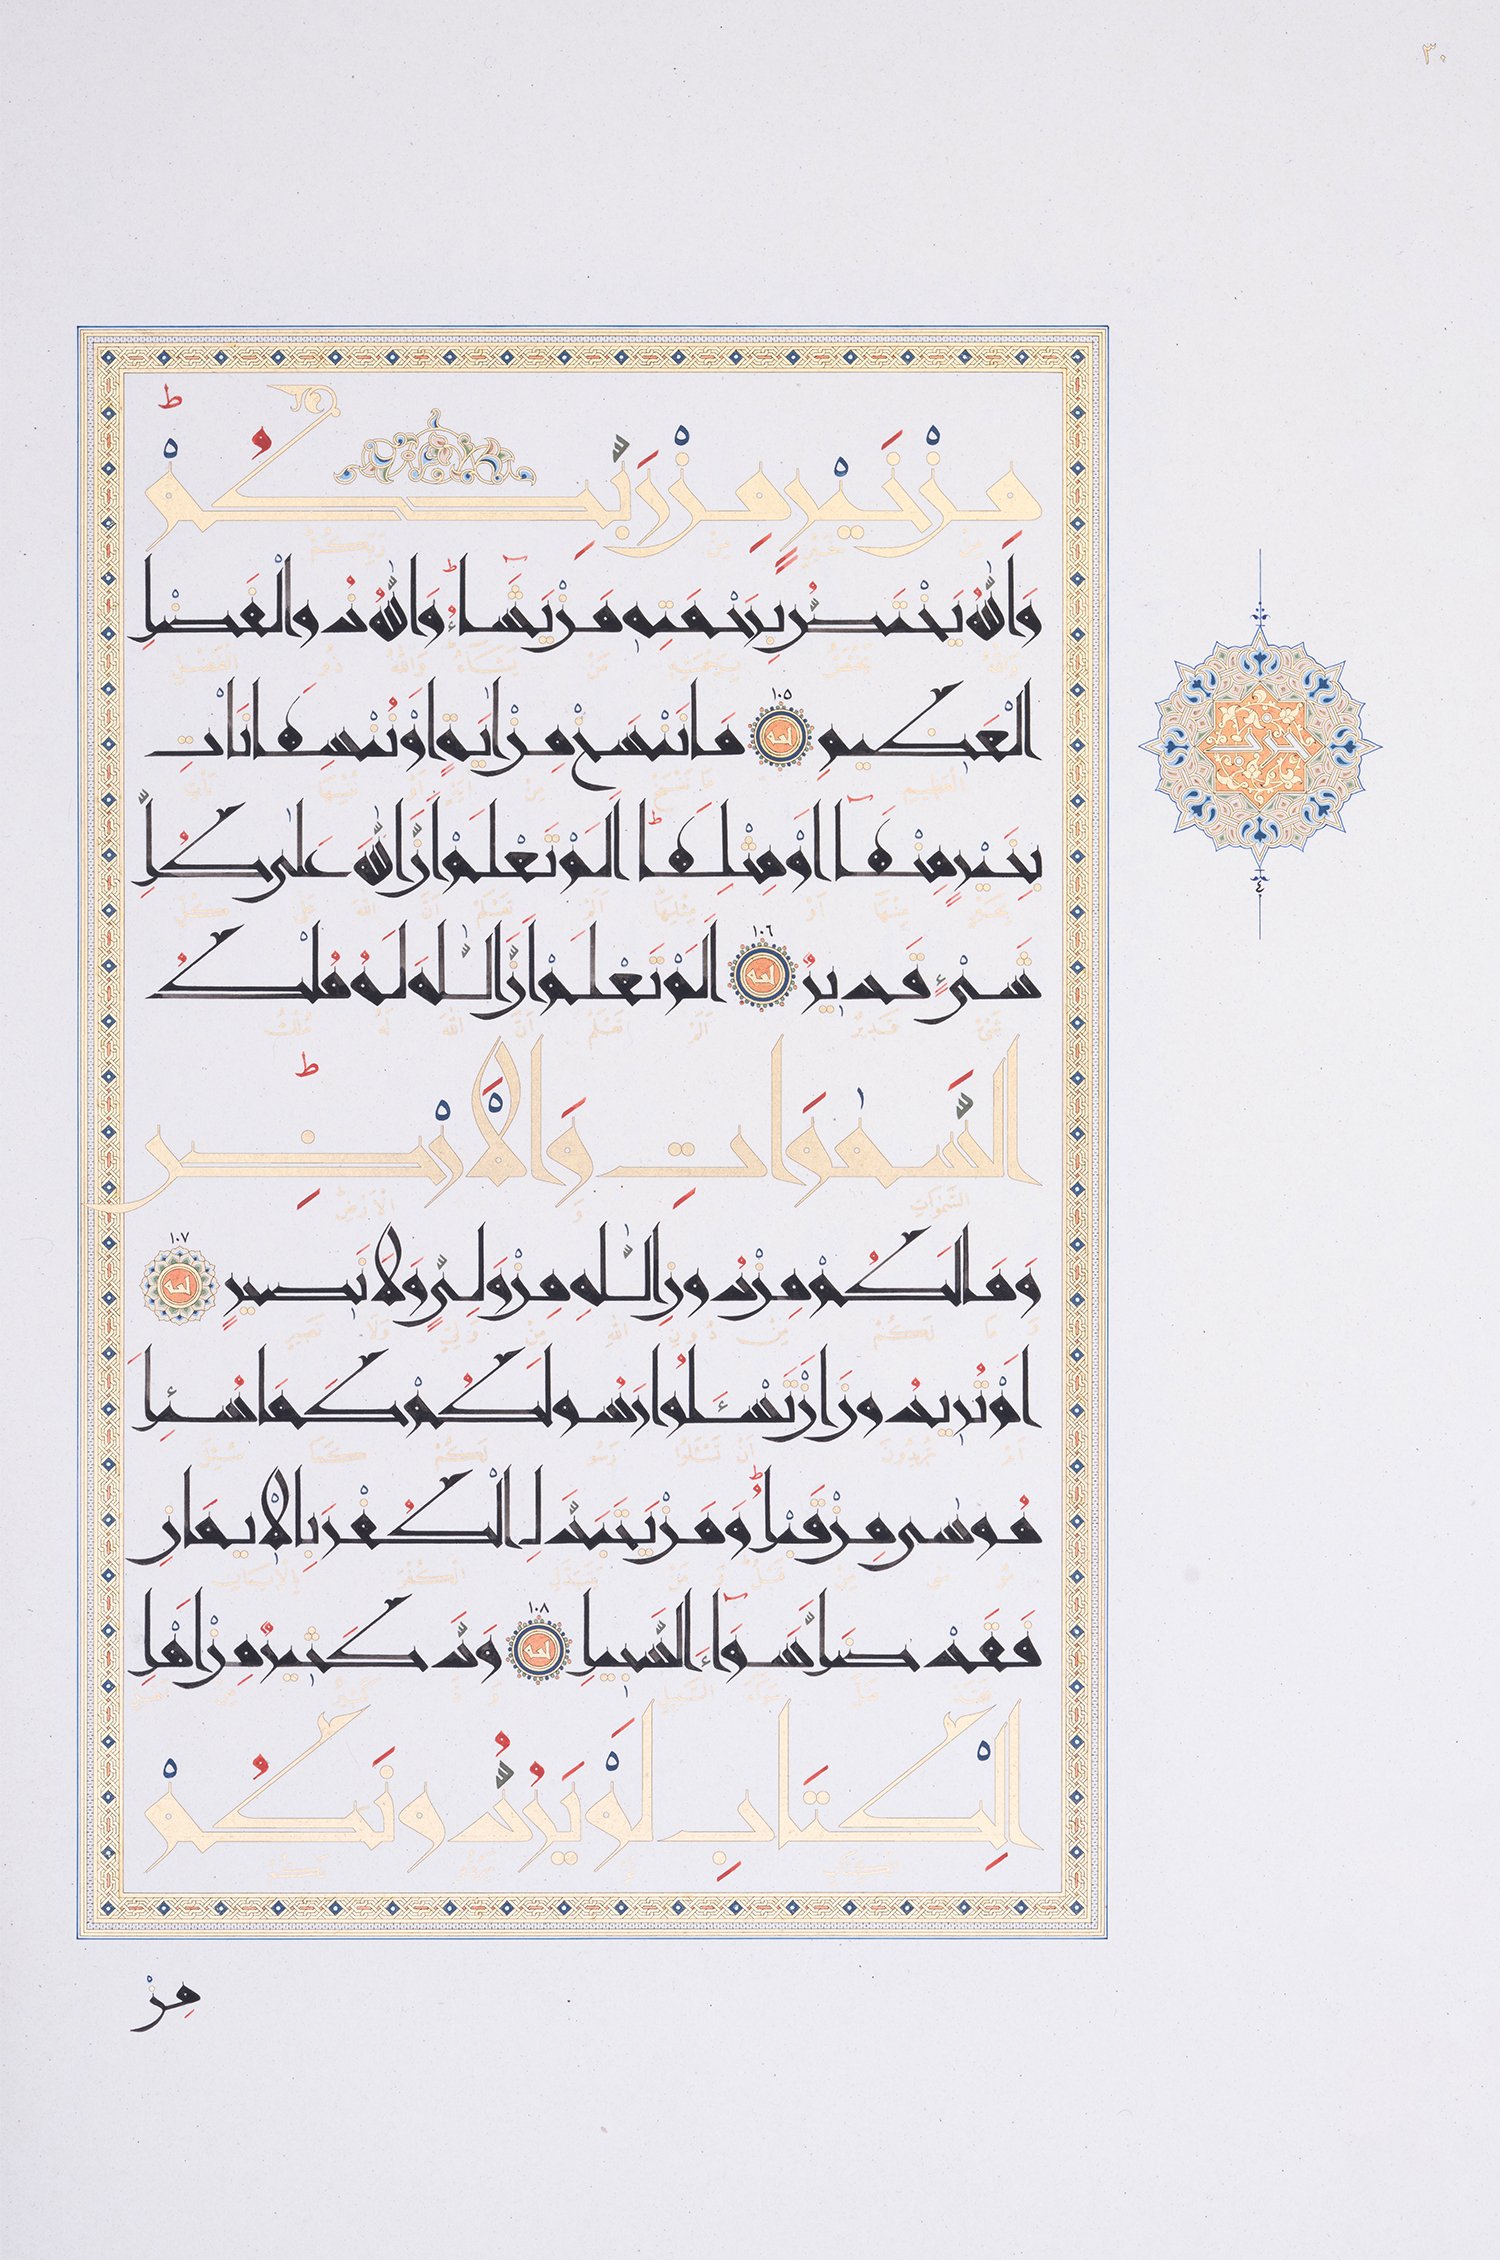 ٣٠
مِنْ خَيْرٍ مِنْ رَبِّكُمْ ط
وَاللّٰهُ يَخْتَصُّ بِرَحْمَتِهٖ مَنْ يَشَآءُ ط وَاللّٰهُ ذُو الْفَضْلِ
الْعَظِيمِ ١٠٥ مَا نَنْسَخْ مِنْ اٰيَةٍ اَوْ نُنْسِهَا نَأْتِ
بِخَيْرٍ مِنْهَآ اَوْ مِثْلِهَا ط اَلَمْ تَعْلَمْ اَنَّ اللّٰهَ عَلٰى كُلِّ
شَىْءٍ قَدِيرٌ ١٠٦ اَلَمْ تَعْلَمْ اَنَّ اللّٰهَ لَهُ مُلْكُ
السَّمٰوَاتِ وَالْاَرْضِ ط
وَمَا لَكُمْ مِنْ دُونِ اللّٰهِ مِنْ وَلِىٍّ وَلَا نَصِيرٍ ١٠٧
اَمْ تُرِيدُونَ اَنْ تَسْـَٔلُوا رَسُولَكُمْ كَمَا سُئِلَ
مُوسٰى مِنْ قَبْلُ ط وَمَنْ يَتَبَدَّلِ الْكُفْرَ بِالْاِيمَانِ
فَقَدْ ضَلَّ سَوَآءَ السَّبِيلِ ١٠٨ وَدَّ كَثِيرٌ مِنْ اَهْلِ
الْكِتَابِ لَوْ يَرُدُّونَكُمْ
مِنْ
حزب
٤